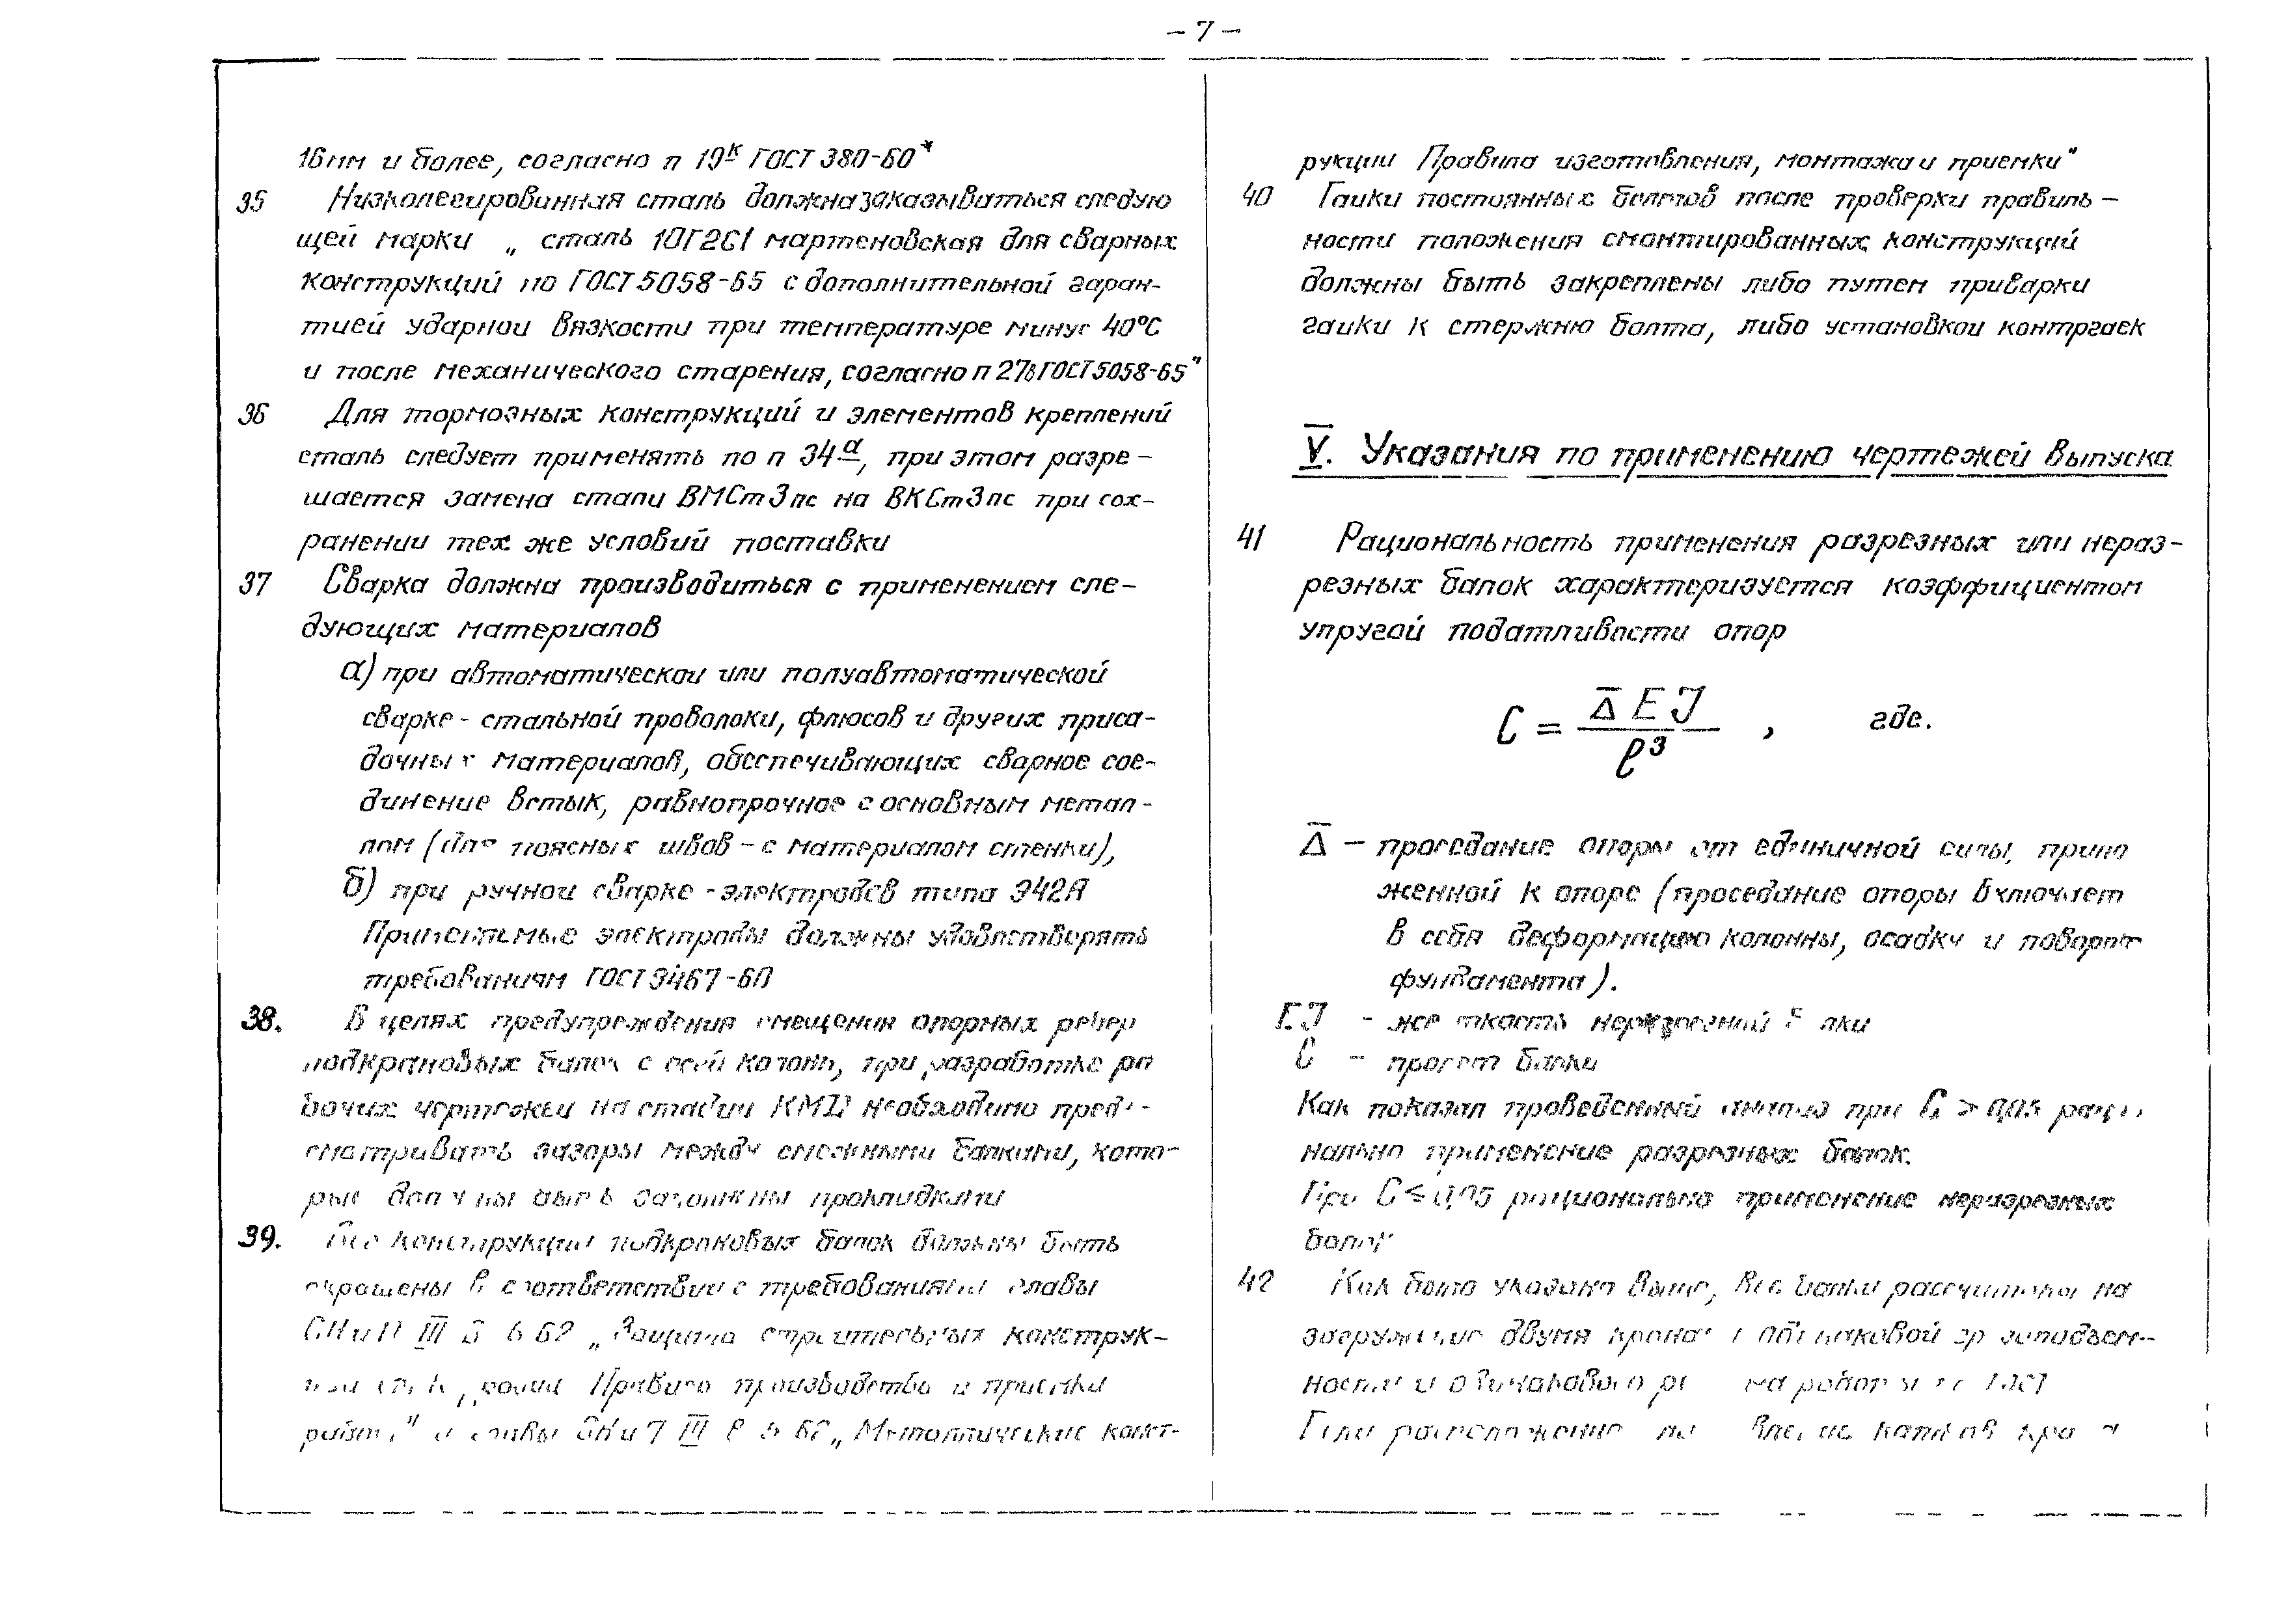 – 7 –
16мм и более, согласно п 19к ГОСТ 380-60*
35 Низколегированная сталь должна заказываться следую
щей марки „ сталь 10Г2С1 мартеновская для сварных
конструкций по ГОСТ 5058-65 с дополнительной гаран-
тией ударной вязкости при температуре минус 40°С
и после механического старения, согласно п 27в ГОСТ 5058-65"
36 Для тормозных конструкций и элементов креплений
сталь следует применять по п 34а, при этом разре-
шается замена стали ВМСт3пс на ВКСт3пс при сох-
ранении тех же условий поставки
37 Сварка должна производиться с применением сле-
дующих материалов
а) при автоматической или полуавтоматической
сварке - стальной проволоки, флюсов и других приса-
дочных материалов, обеспечивающих сварное сое-
динение встык, равнопрочное с основным метал-
лом (для поясных швов – с материалом стенки),
б) при ручной сварке - электродов типа Э42А
Применяемые электроды должны удовлетворять
требованиям ГОСТ 9467-60
38. В целях предупреждения смещения опорных ребер
подкрановых балок с осей колонн, при разработке ра
бочих чертежей на стадии КМД необходимо преду-
сматривать зазоры между смежными балками, кото-
рые должны быть заполнены прокладками
39. Все конструкции подкрановых балок должны быть
окрашены в соответствии с требованиями главы
СНиП III 62 „Защита строительных конструк-
Правила производства и приемки
работ" и главы СНиП III В 5 62 „Металлические конст-
рукции Правила изготовления, монтажа и приемки"
40 Гайки постоянных болтов после проверки правиль-
ности положения смонтированных конструкций
должны быть закреплены либо путем приварки
гайки к стержню болта, либо установкой контргаек
V. Указания по применению чертежей выпуска
41 Рациональность применения разрезных или нераз-
резных балок характеризуется коэффициентом
упругой податливости опор
C = Δ̄ EJ / ℓ³ , где.
Δ̄ – проседание опоры от единичной силы, прило
женной к опоре (проседание опоры включает
в себя деформацию колонны, осадку и поворот
фундамента).
EJ - жесткость неразрезной балки
– пролет балки
Как показал проведенный анализ при C > 0,05 рацио
нально применение разрезных балок.
При C ≤ 0,05 рационально применение неразрезных
балок
42 Как было указано выше, все балки рассчитаны на
загружение двумя кранами одинаковой грузоподъем-
ности и одинакового режима работы
Если расположение